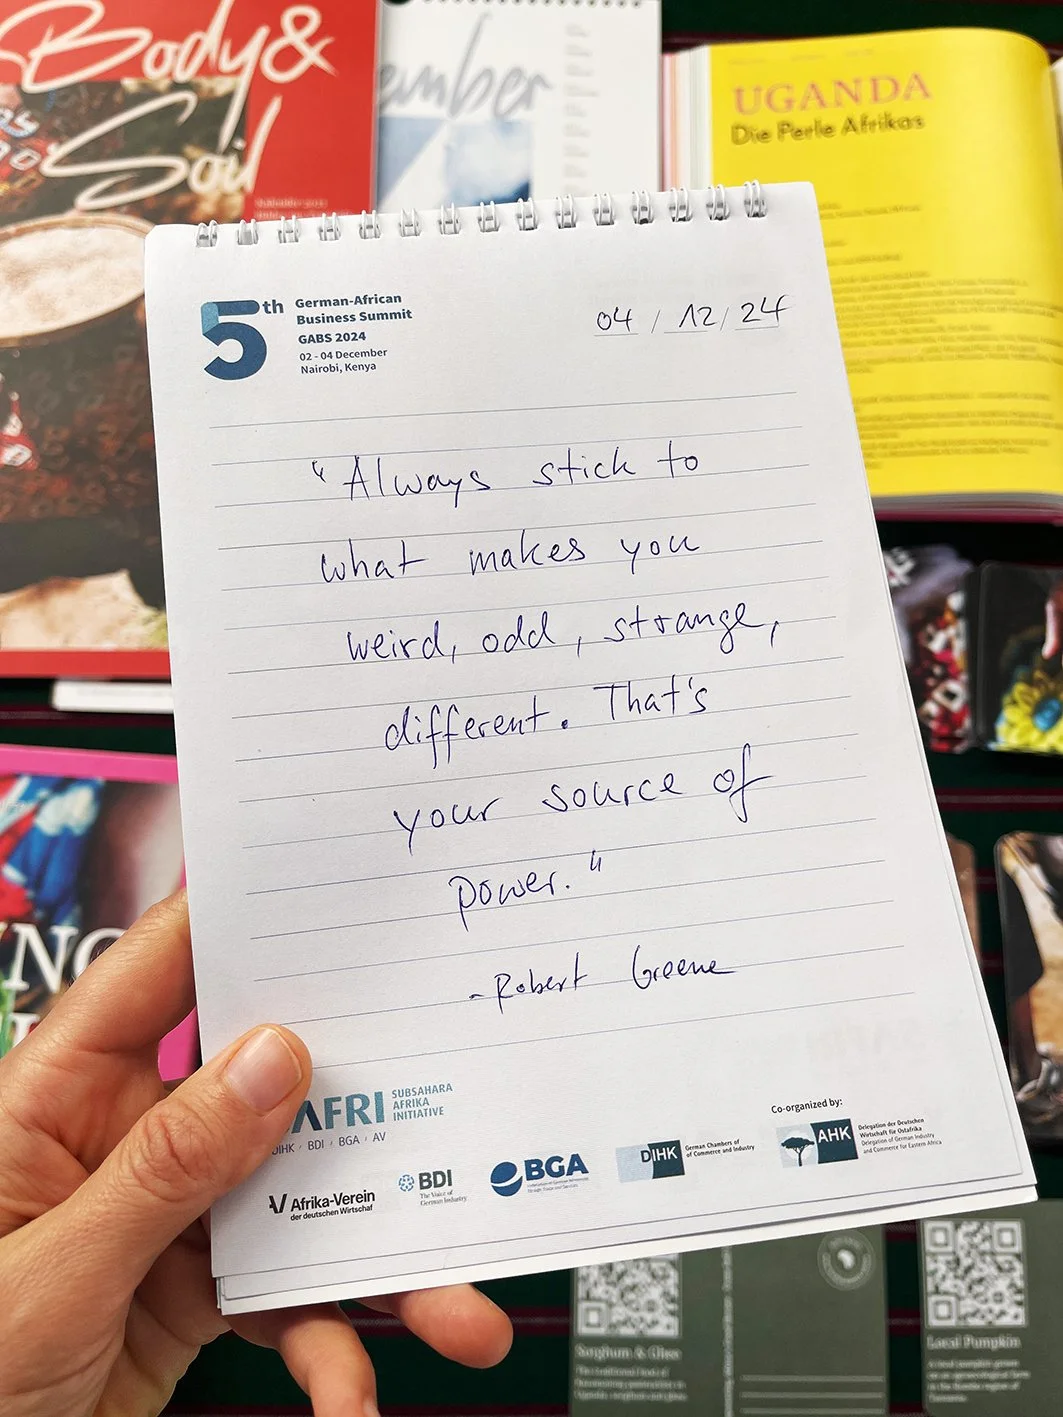 Body &
Soil
ember
UGANDA
Die Perle Afrikas
5th
German-African
Business Summit
GABS 2024
02 - 04 December
Nairobi, Kenya
04 / 12 / 24
"Always stick to
what makes you
weird, odd, strange,
different. That's
your source of
power."
- Robert Greene
AFRI
SUBSAHARA
AFRIKA
INITIATIVE
DIHK / BDI / BGA / AV
Afrika-Verein
der deutschen Wirtschaf
BDI
The Voice of
German Industry
BGA
DIHK
German Chambers of
Commerce and Industry
Co-organized by:
AHK
Delegation der Deutschen
Wirtschaft für Ostafrika
Delegation of German Industry
and Commerce for Eastern Africa
Sorghum & Glass
Local Pumpkin